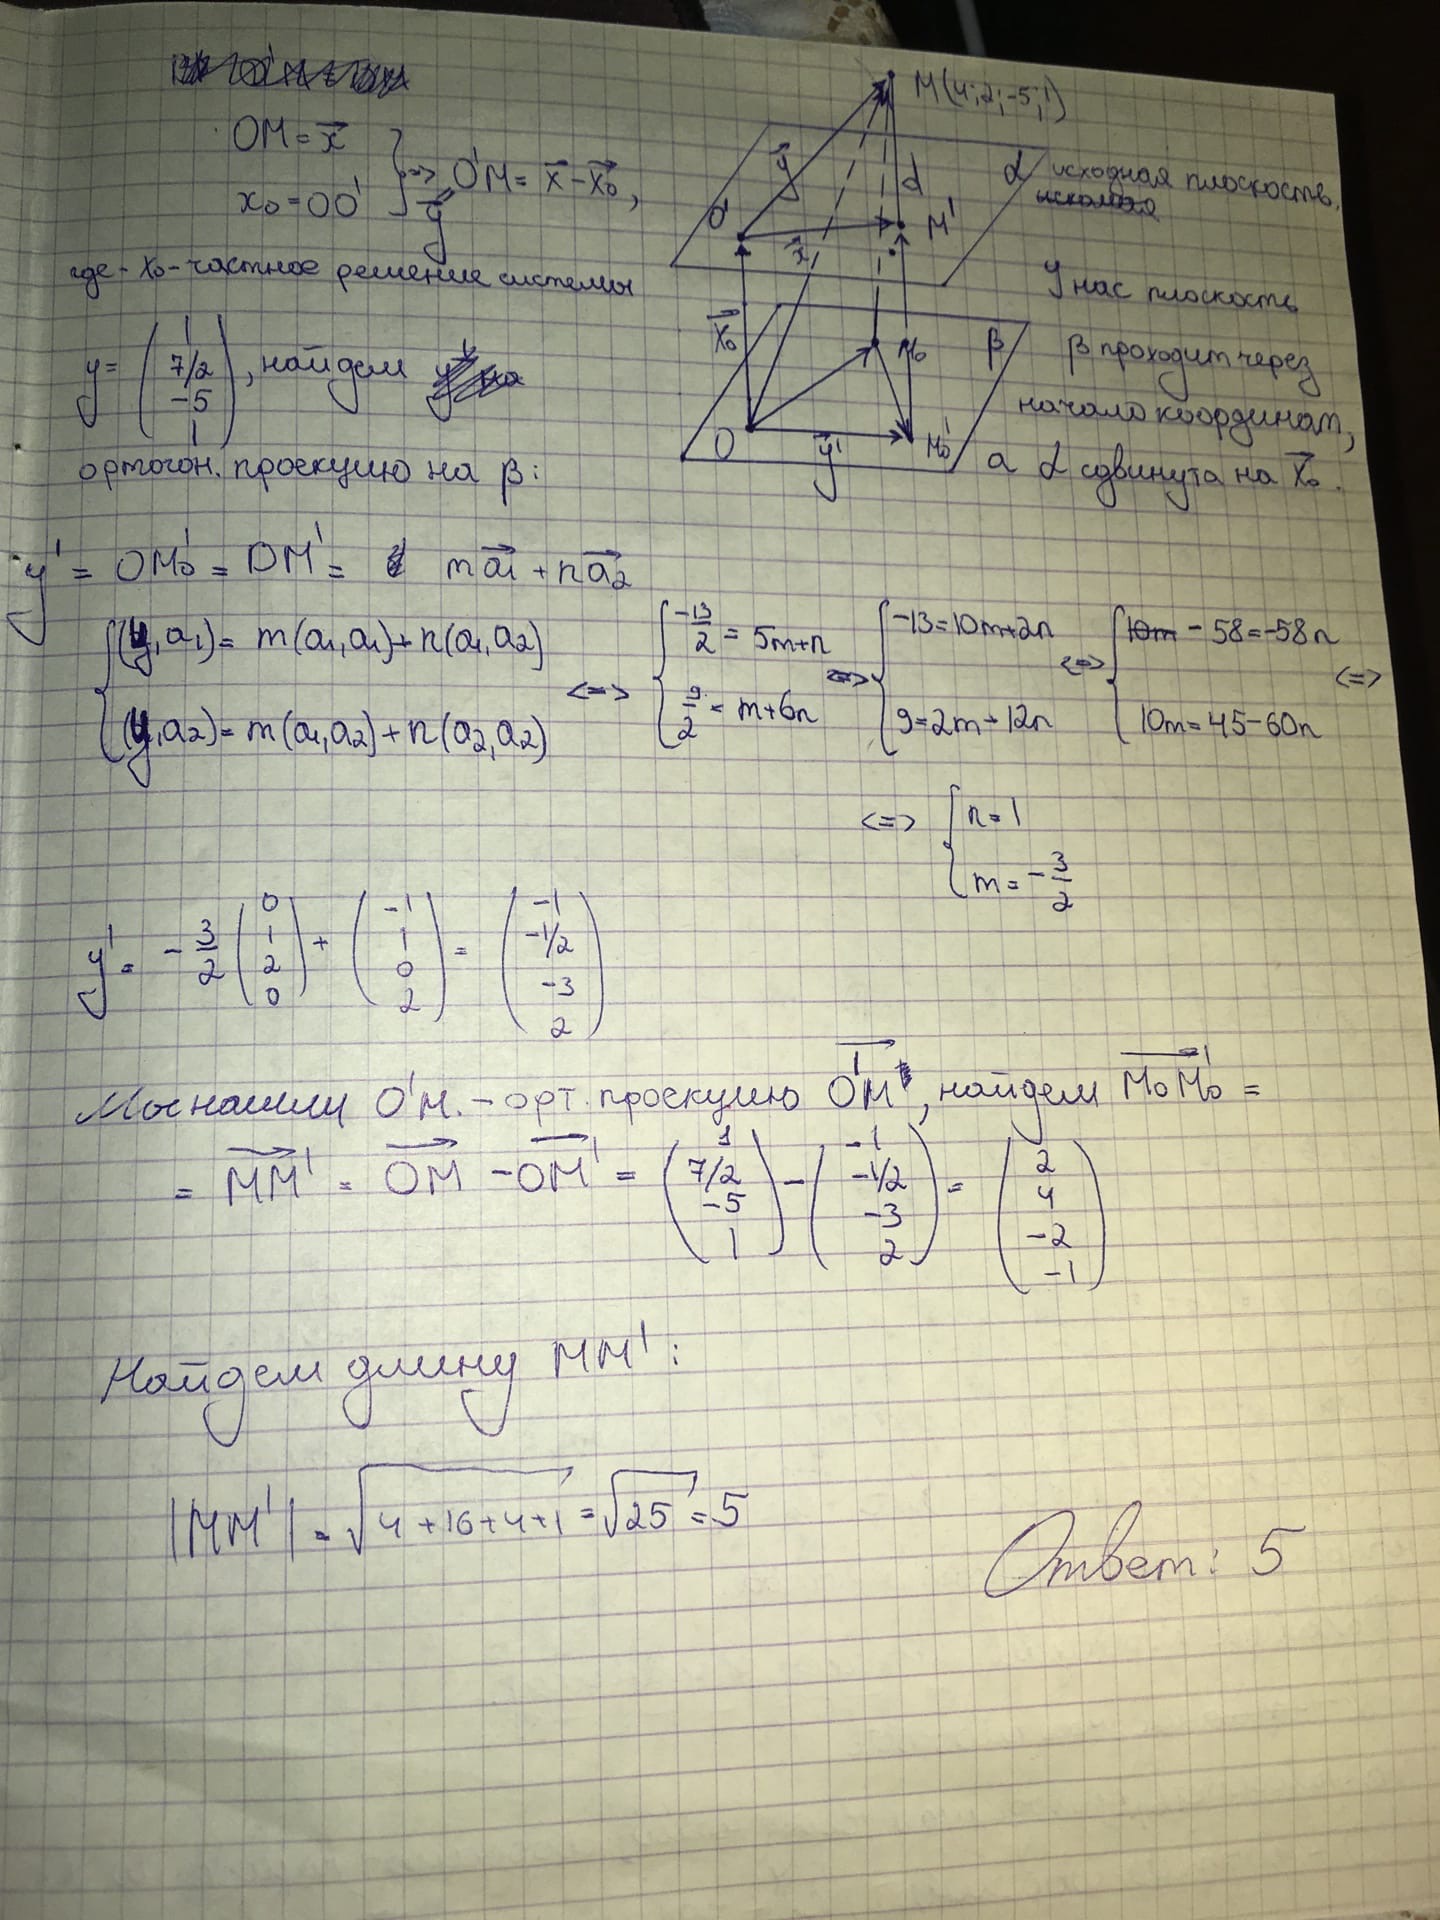 OM = x⃗
x₀ = OO'
} => O'M = x⃗ - x₀⃗,
y⃗
где - x₀ - частное решение системы
y = (1 7/2 -5 1), найдем
ортогон. проекцию на β:
M(4; 2; -5; 1)
y⃗
d
α исходная плоскость.
O'
M'
x⃗
У нас плоскость
x₀⃗
M₀
β
β проходит через
начало координат,
O
y⃗'
M₀'
а α сдвинута на x₀⃗.
y' = OM₀' = OM' = ma₁⃗ + na₂⃗
{ (y, a₁) = m(a₁, a₁) + n(a₁, a₂)
(y, a₂) = m(a₁, a₂) + n(a₂, a₂)
<=> { -13/2 = 5m+n
9/2 = m+6n
<=> { -13 = 10m+2n
9 = 2m+12n
<=> { -58 = -58n
10m = 45-60n
<=>
<=> { n = 1
m = -3/2
y' = -3/2 (0 1 2 0) + (-1 1 0 2) = (-1 -1/2 -3 2)
Мы нашли O'M. - орт. проекцию O'M, найдем M₀M₀' =
= MM' = OM - OM' = (1 7/2 -5 1) - (-1 -1/2 -3 2) = (2 4 -2 -1)
Найдем длину MM':
|MM'| = √4+16+4+1 = √25 = 5
Ответ: 5